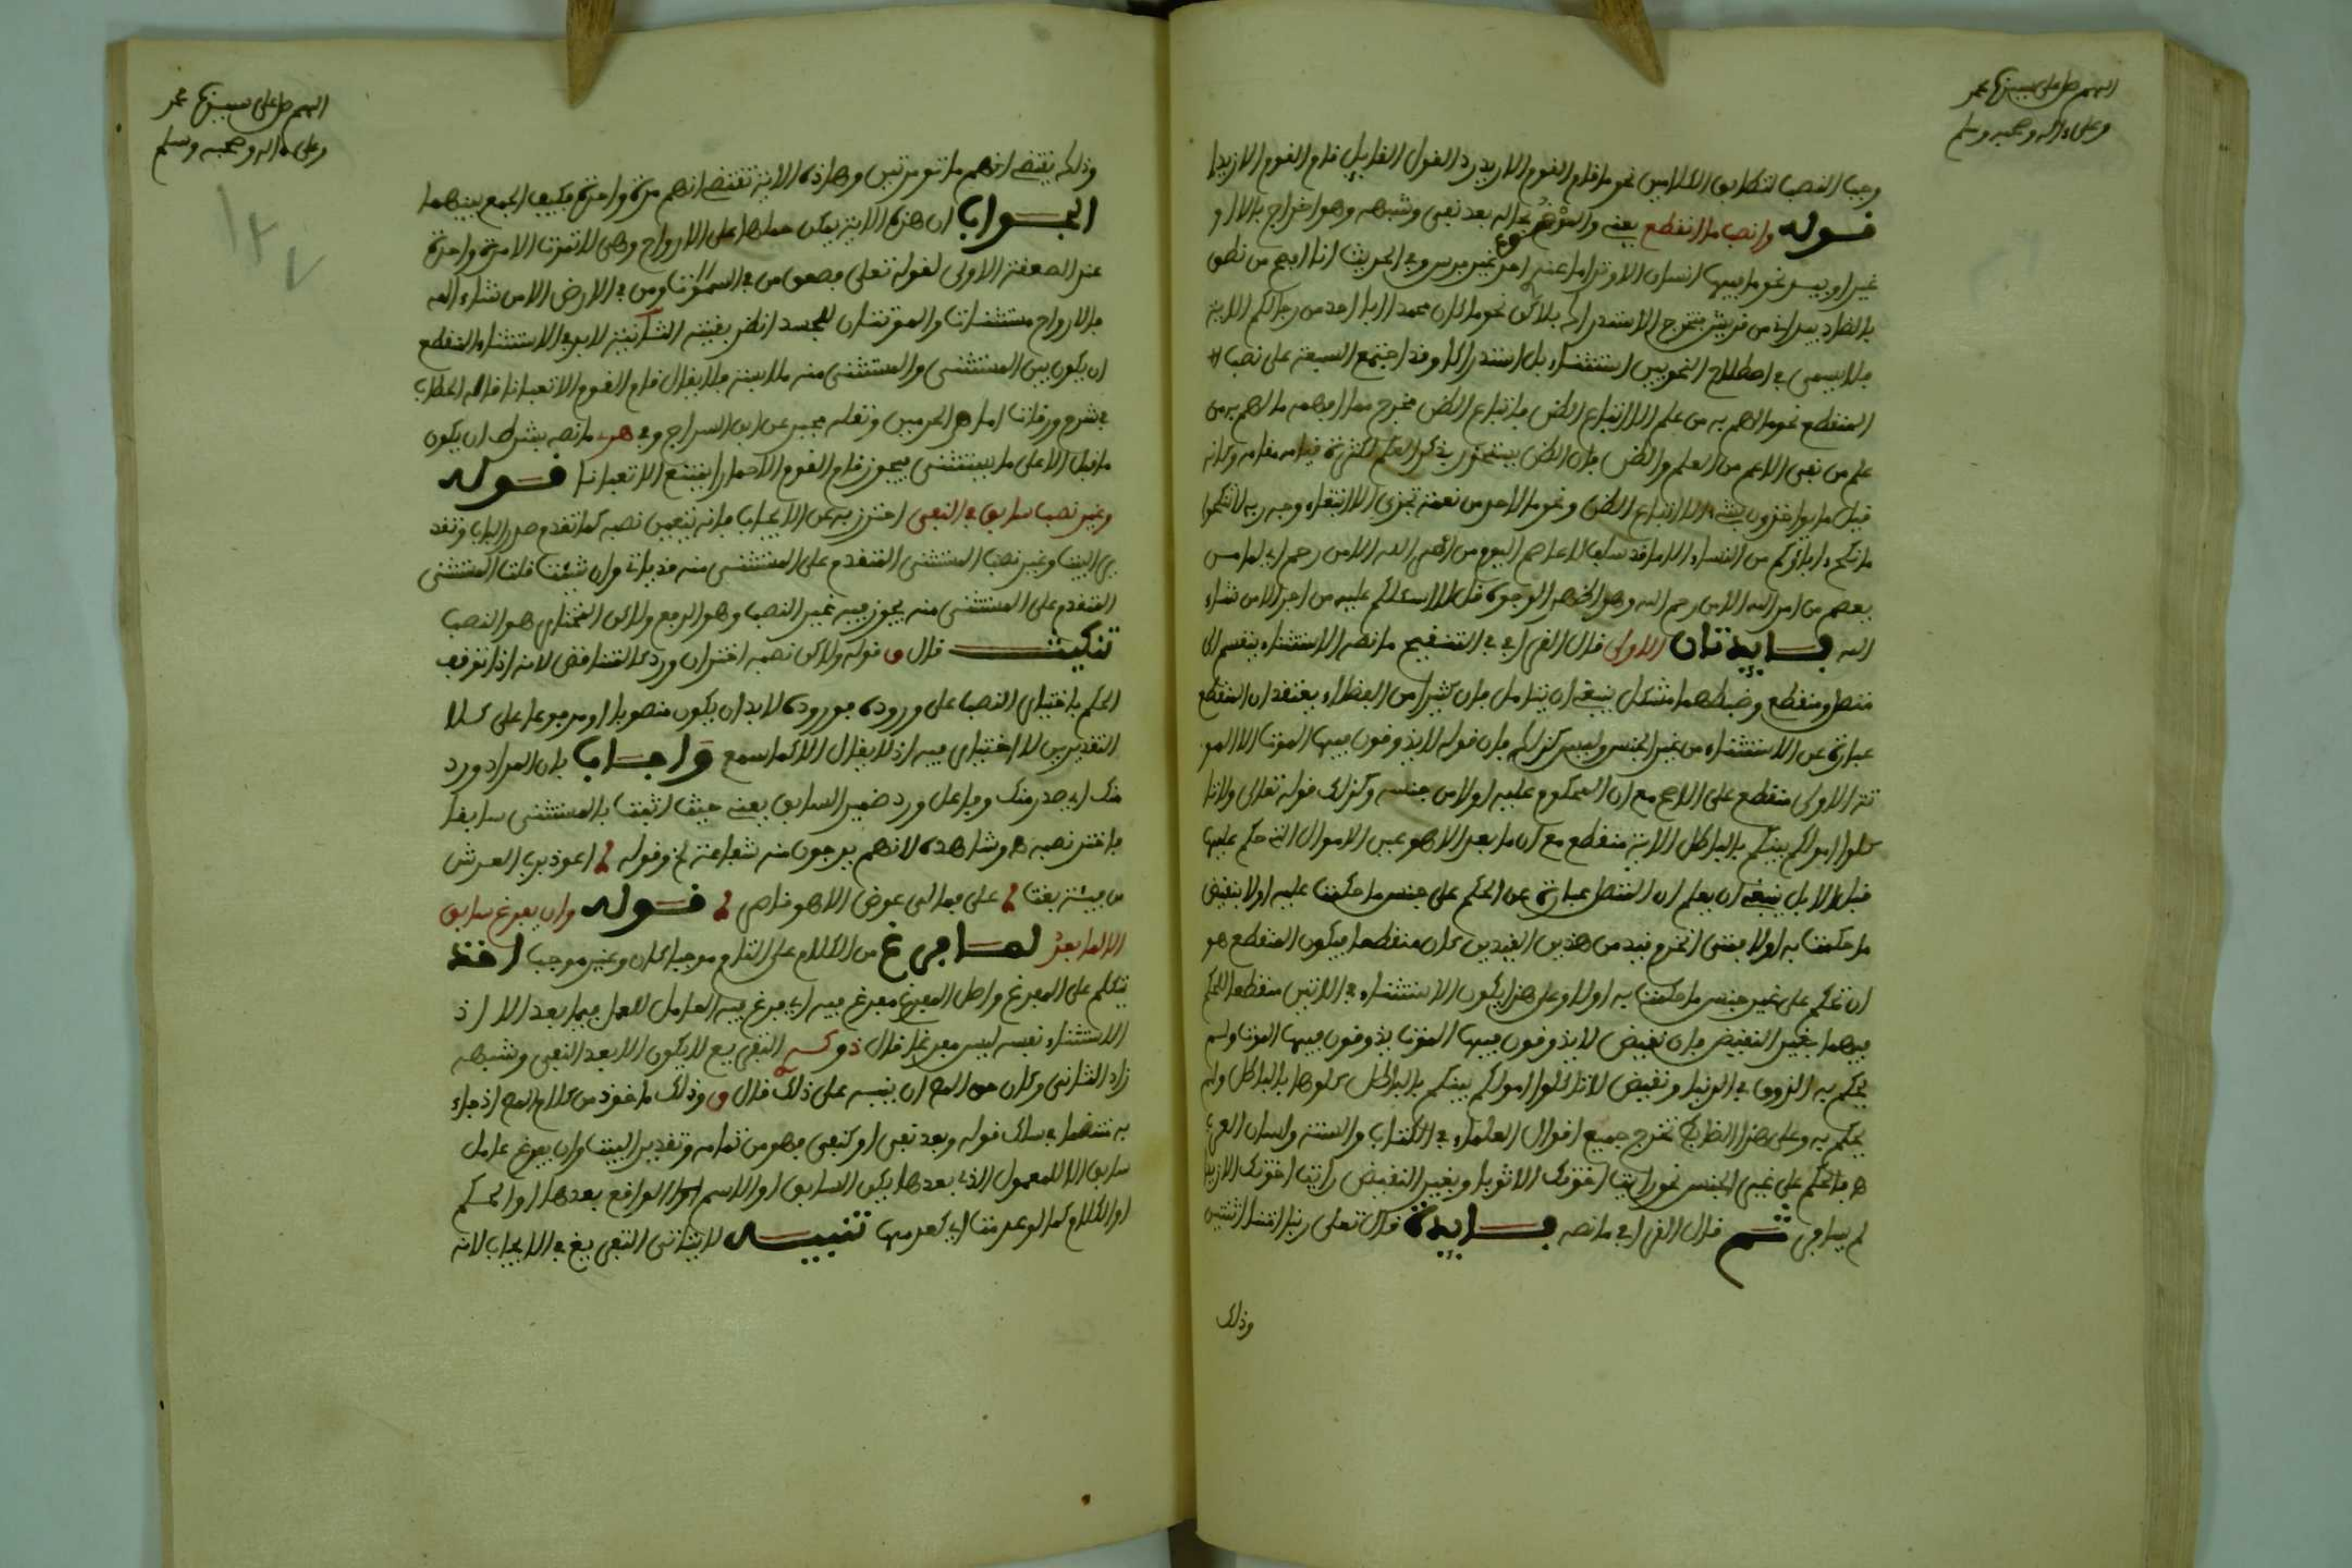 اللهم صل على سيدنا محمد
وعلى ءاله وصحبه وسلم
وجب النصب لتطابق الكلامين نحو ما قام القوم الا زيد رد القول القايل قام القوم الا زيدا
قوله وانصب ما انقطع يعني بعد نفي وشبهه وهو اخراج بالا او
غير او بيد نحو ما فيها انسان الا وتدا ما عنده احد غير فرس وفي الحديث انا افصح من نطق
بالضاد بيد اني من قريش فتخرج الاستدراك بلاكن نحو ما كان محمد ابا احد من رجالكم الاية
فلا يسمى في اصطلاح النحويين استثناء بل استدراكا وقد اجتمع السبعة على نصب
المنقطع نحو ما لهم به من علم الا اتباع الظن فاتباع الظن مخرج مما افهمه ما لهم به من
علم من نفي الاعم من العلم والظن فان الظن يستحضر بذكر العلم لكثرة قيامه مقامه وكانه
قيل ما ياخذون بشيء الا اتباع الظن ونحو ما لاحد من نعمة تجزى الا ابتغاء وجه ربه لا تنكحوا
ما نكح ءاباؤكم من النساء الا ما قد سلف لا عاصم اليوم من امر الله الا من رحم اي لا من
يعصم من امر الله الا من رحم الله وهو اظهر الوجوه قل لا اسئلكم عليه من اجر الا من شاء
الله فايدتان الاولى قال القرافي في التنقيح ما نصه الاستثناء ينقسم الى
متصل ومنقطع وضبطهما مشكل ينبغي ان يتامل فان كثيرا من الفضلاء يعتقد ان المنقطع
عبارة عن الاستثناء من غير الجنس وليس كذلك فان قوله لا يذوقون فيها الموت الا المو
تة الاولى منقطع على الاصح مع ان المحكوم عليه اولا من جنسه وكذلك قوله تعالى ولا تا
كلوا اموالكم بينكم بالباطل الاية منقطع مع ان ما بعد الا هو عين الاموال التي حكم عليها
قبل الا بل ينبغي ان يعلم ان المتصل عبارة عن الحكم على جنس ما حكمت عليه اولا بنقيض
ما حكمت به اولا فمتى انخرم قيد من هذين القيدين كان منقطعا فيكون المنقطع هو
ان تحكم على غير جنس ما حكمت به اولا وعلى هذا يكون الاستثناء في الايتين منقطعا للحكم
فيهما بغير النقيض فان نقيض لا يذوقون فيها الموت يذوقون فيها الموت ولم
يحكم به الذوق في الدنيا ونقيض لا تاكلوا اموالكم بينكم بالباطل كلوها بالباطل ولم
يحكم به وعلى هذا الضابط تخرج جميع اقوال العلماء في الكتاب والسنة ولسان العرب
فالحكم على غير الجنس نحو رايت اخوتك الا ثوبا وبغير النقيض رايت اخوتك الا زيدا
لم يسافر ثم قال القرافي ما نصه فايدة قال تعالى ربنا امتنا اثنتين
وذلك
اللهم صل على سيدنا محمد
وعلى ءاله وصحبه وسلم
وذلك يقتضي انهم ماتوا مرتين وهاذه الاية تقتضي انهم مرة واحدة فكيف الجمع بينهما
الجواب ان هذه الاية يمكن حملها على الارواح وهي لا تموت الا مرة واحدة
عند الصعقة الاولى لقوله تعلى فصعق من في السموت ومن في الارض الا من شاء الله
فالارواح مستثنات والموتتان للجسد انظر بقيته الثانية لا بد في الاستثناء المنقطع
ان يكون بين المستثنى والمستثنى منه ملابسة فلا يقال قام القوم الا ثعبانا قاله الحطاب
في شرح ورقات امام الحرمين ونقله عن ابن السراج وفي ما نصه بشرط ان يكون
ما قبل الا على ما يستثنى فيجوز قام القوم الا حمارا ويمتنع الا ثعبانا قوله
وغير نصب سابق في النفي احترز به عن الايجاب فانه يتعين نصبه كما تقدم صدر الباب وتقد
ير البيت وغير نصب المستثنى المتقدم على المستثنى منه قد ياتي وان شئت قلت المستثنى
المتقدم على المستثنى منه يجوز فيه غير النصب وهو الرفع ولاكن المختار هو النصب
تنكيت قال و قوله ولاكن نصبه اختر ان ورد كالتناقض لانه اذا توقف
الحكم باختيار النصب على وروده فوروده لا بد ان يكون منصوبا او مرفوعا على كلا
التقديرين لا اختيار فيه اذ لا يقال الا كما سمع واجاب بان المراد ورد
منك اي صدر منك وفاعل ورد ضمير السابق يعني حيث اتيت بالمستثنى سابقا
فاختر نصبه وشاهده لانهم يرجون منه شفاعة وقوله اعوذ برب العرش
من فئة بغت علي فما لي عوض الاه ناصر قوله وان يفرغ سابق
الا لما بعد لما فرغ من الكلام على التام موجبا كان وغير موجب اخذ
يتكلم على المفرغ واصل المفرغ مفرغ فيه اي فرغ فيه العامل للعمل فيما بعد الا اذ
الاستثناء نفسه ليس مفرغا قال ذو كـ النفي مع لا يكون الا بعد النفي وشبهه
زاد الثاني وكان حق المص ان ينبه على ذلك قال و وذلك ماخوذ من كلام المص اذ جاء
به متصلا قوله وبعد نفي او كنفي فهو من تمامه وتقدير البيت وان يفرغ عامل
سابق الا للمعمول الذي بعدها يكن السابق او الاسم الواقع بعدها او الحكم
او الكلام كما لو عدمت اي كعدمها تنبيه لا يتاتى التفريغ في الايجاب لانه